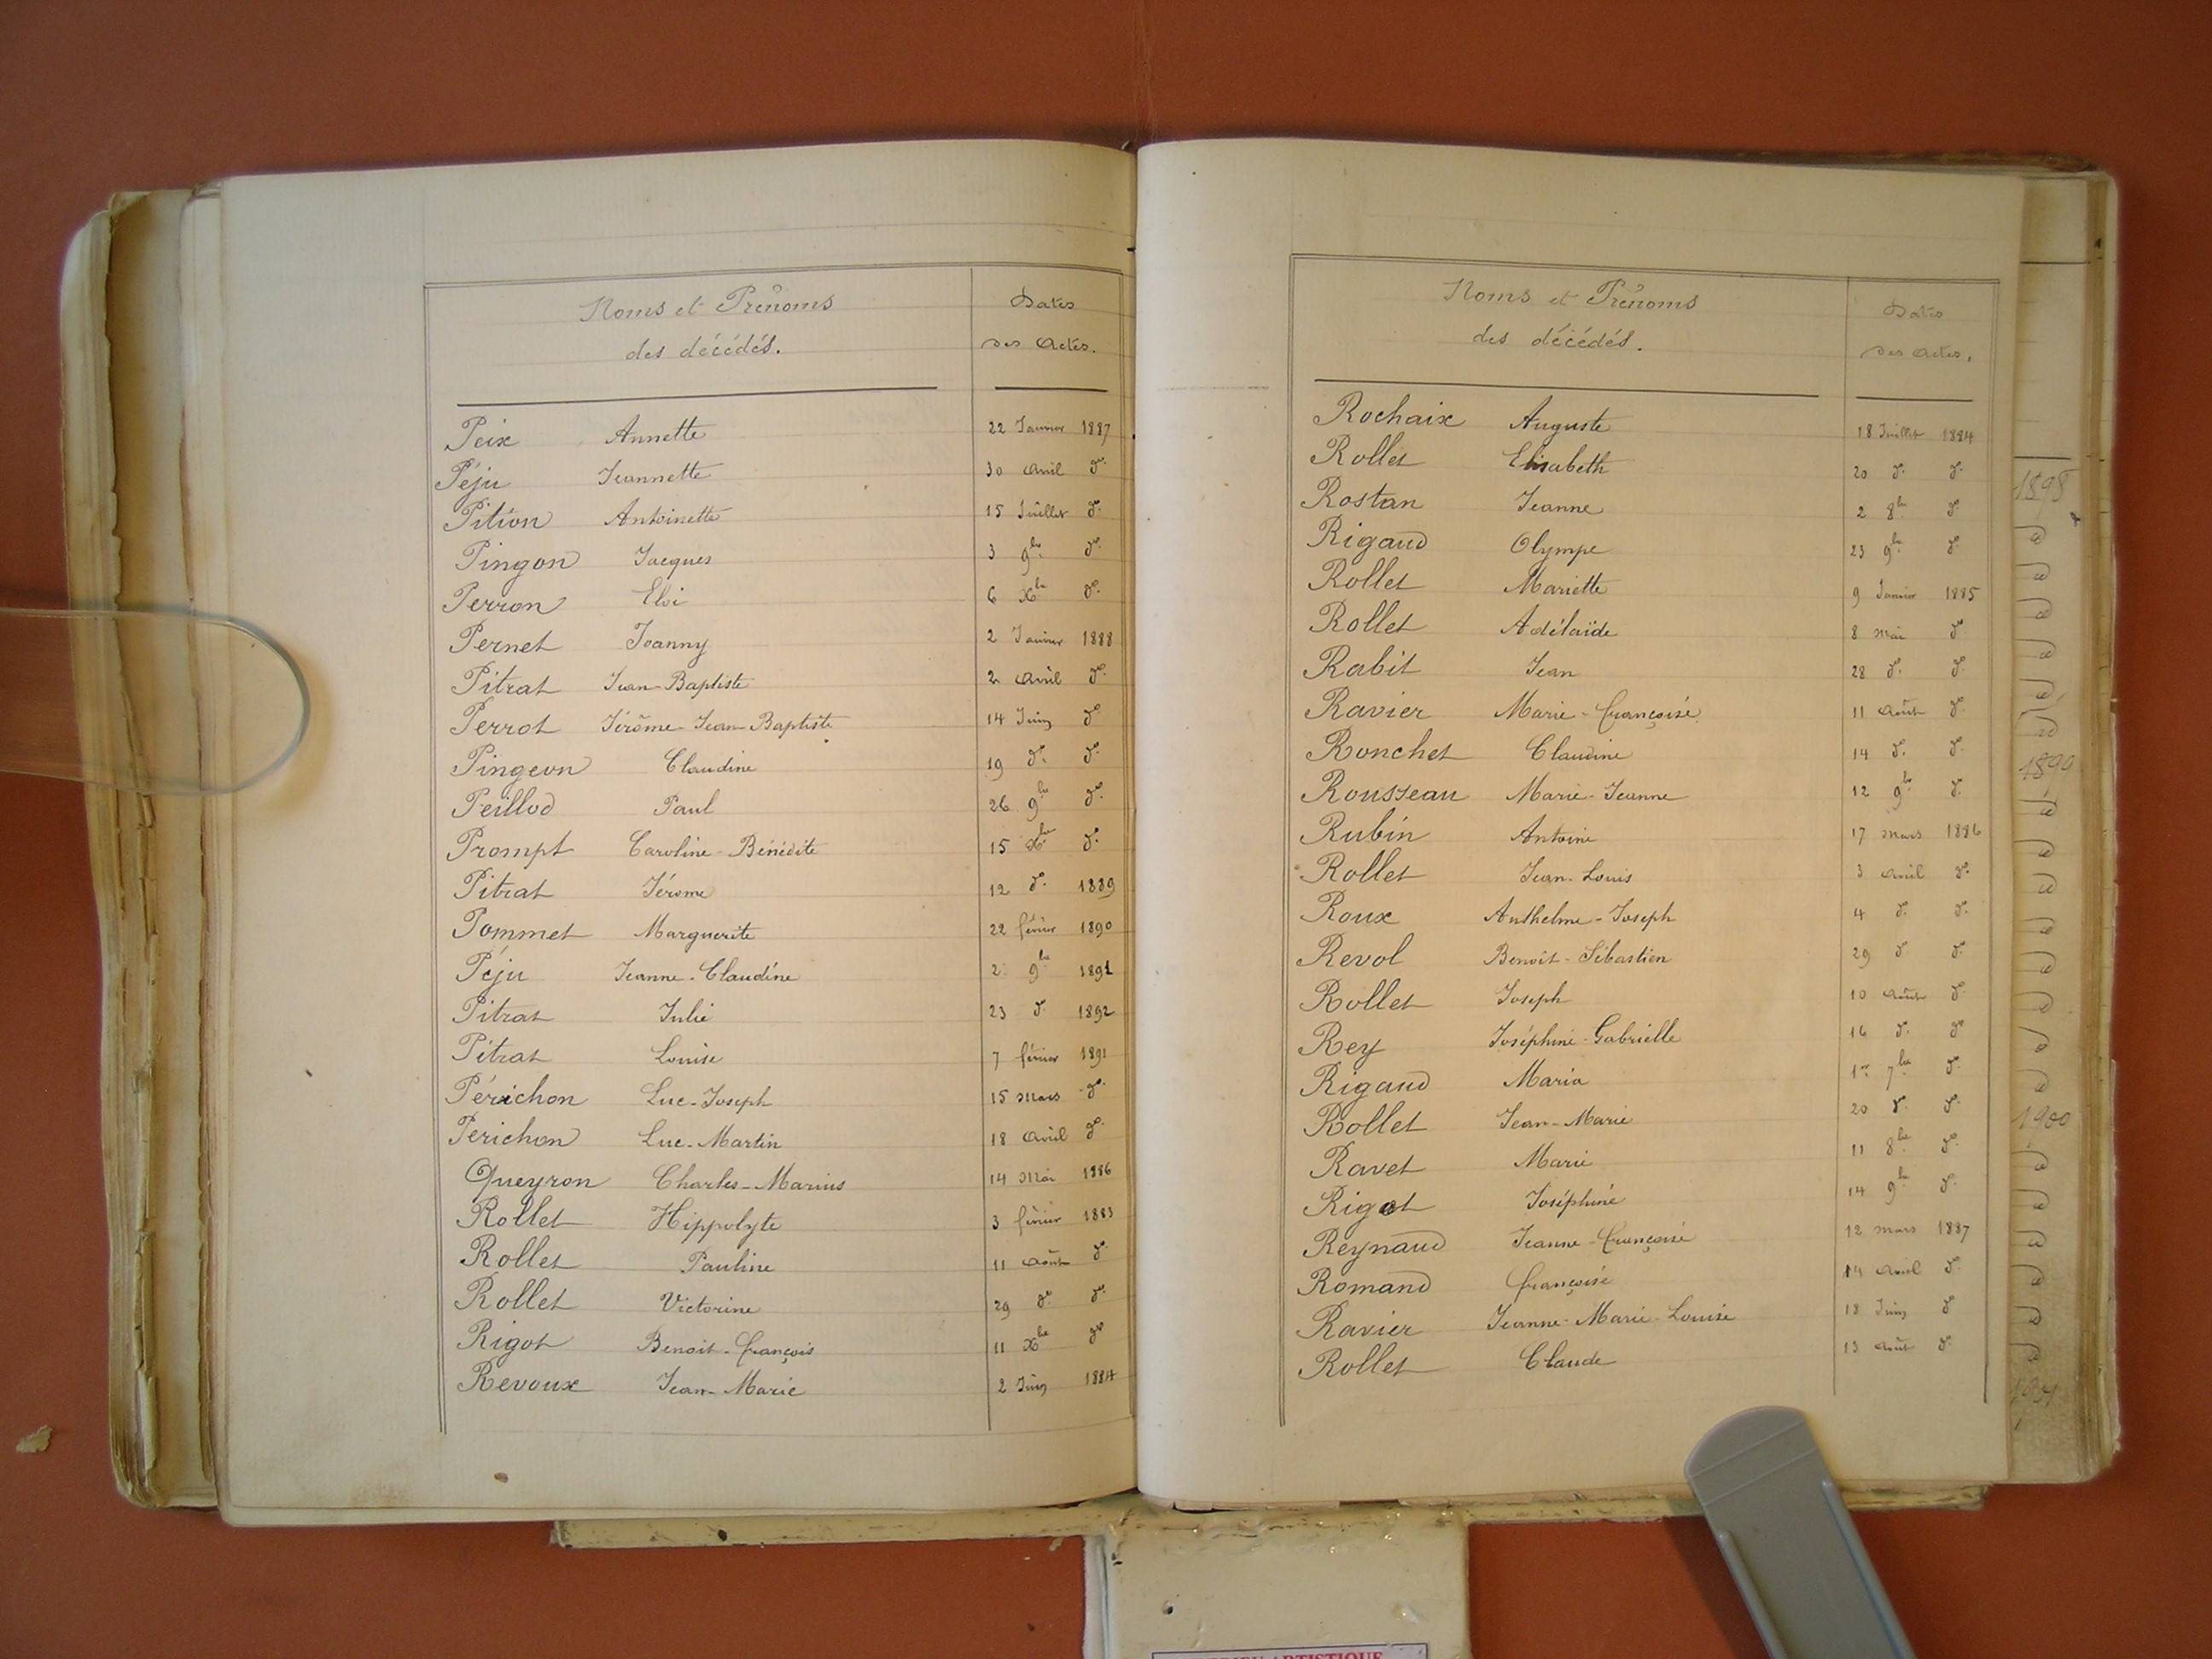 Noms et Prénoms
des décédés.
Dates
des Actes.
Peix Annette 22 Janvier 1887
Péju Jeannette 30 Avril do.
Pition Antoinette 15 Juillet do.
Pingon Jacques 3 9bre do.
Perron Eloi 6 Xbre do.
Pernet Joanny 2 Janvier 1888
Pitrat Jean-Baptiste 2 Avril do.
Perrot Jérôme-Jean-Baptiste 14 Juin do.
Pingeon Claudine 19 do. do.
Peillod Paul 26 9bre do.
Prompt Caroline-Bénédite 15 Xbre do.
Pitrat Jérome 12 do. 1889
Pommet Marguerite 22 février 1890
Péju Jeanne-Claudine 2 9bre 1891
Pitrat Julie 23 do. 1892
Pitrat Louise 7 février 1891
Périchon Luc-Joseph 15 Mars do.
Périchon Luc-Martin 18 Avril do.
Queyron Charles-Marius 14 Mai 1886
Rollet Hippolyte 3 février 1883
Rollet Pauline 11 Août do.
Rollet Victorine 29 do. do.
Rigot Benoit-François 11 Xbre do.
Revoux Jean-Marie 2 Juin 1884
Noms et Prénoms
des décédés.
Dates
des Actes.
Rochaix Auguste 18 Juillet 1884
Rollet Elisabeth 20 do. do.
Rostan Jeanne 2 8bre do.
Rigaud Olympe 23 9bre do.
Rollet Mariette 9 Janvier 1885
Rollet Adélaïde 8 Mai do.
Rabit Jean 28 do. do.
Ravier Marie-Françoise 11 Août do.
Ronchet Claudine 14 do. do.
Rousseau Marie-Jeanne 12 9bre do.
Rubin Antoine 17 Mars 1886
Rollet Jean-Louis 3 Avril do.
Roux Anthelme-Joseph 4 do. do.
Revol Benoit-Sébastien 29 do. do.
Rollet Joseph 10 Août do.
Rey Joséphine-Gabrielle 16 do. do.
Rigaud Maria 1er 7bre do.
Rollet Jean-Marie 20 do. do.
Ravet Marie 11 8bre do.
Rigot Joséphine 14 9bre do.
Reynaud Jeanne-Françoise 12 Mars 1887
Romand Françoise 14 Avril do.
Ravier Jeanne-Marie-Louise 18 Juin do.
Rollet Claude 13 Août do.
1898
1900